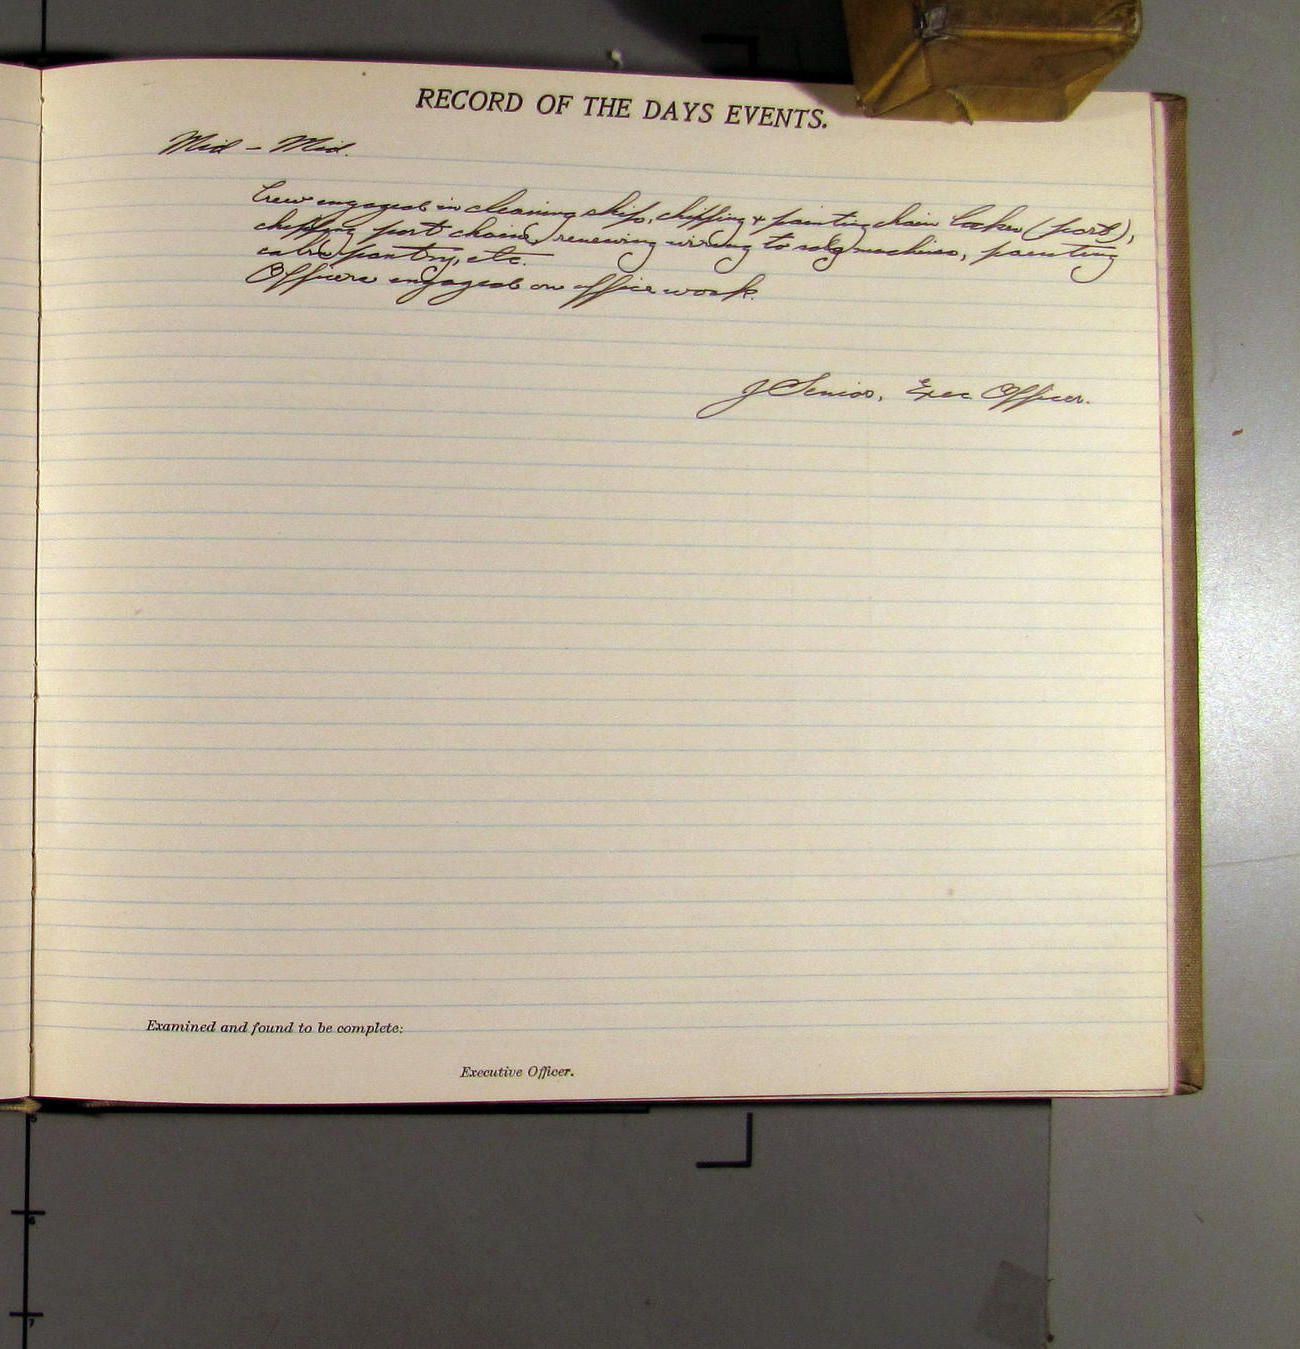 RECORD OF THE DAYS EVENTS.
Mid - Mid.
Crew engaged in cleaning ship, chipping & painting chain locker (port),
chipping port chain, renewing wiring to sdg machines, painting
cabin pantry, etc.
Officers engaged on office work.
J Senior, Exec Officer.
Examined and found to be complete:
Executive Officer.
6
7